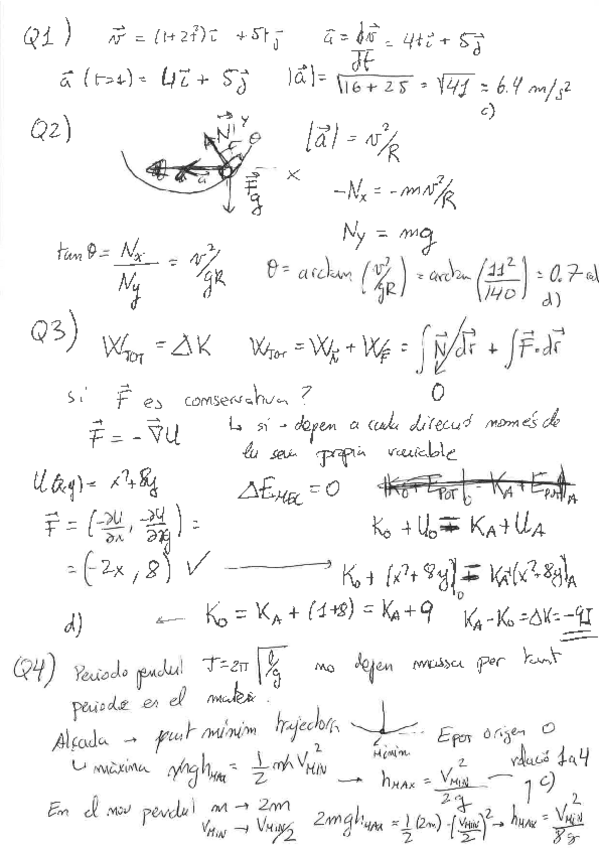 Q1) v⃗ = (1+2t²)i⃗ + 5t j⃗   a⃗ = dv⃗/dt = 4t i⃗ + 5j⃗
a⃗ (t=1) = 4i⃗ + 5j⃗   |a⃗| = √(16+25) = √41 = 6.4 m/s²
c)
Q2) N⃗ y θ a⃗ F⃗g x   |a⃗| = v²/R
-Nx = -mv²/R
Ny = mg
tanθ = Nx/Ny = v²/gR   θ = arctan (v²/gR) = arctan (11²/140) = 0.7 rad
d)
Q3) W_TOT = ΔK   W_TOT = W_N⃗ + W_F⃗ = ∫N⃗ dr⃗ + ∫F⃗·dr⃗
0
si F⃗ es conservativa?
F⃗ = -∇⃗U   ↳ si → depen a cada direcció només de
la seva propia variable
U(x,y) = x²+8y   ΔE_MEC = 0
F⃗ = (-∂U/∂x, -∂U/∂y) =   K₀ + U₀ = K_A + U_A
= (-2x, 8) ✓ → K₀ + (x²+8y)|₀ = K_A + (x²+8y)_A
d) ← K₀ = K_A + (1+8) = K_A + 9   K_A - K₀ = ΔK = -9J
Q4) Periode pendul T = 2π √(l/g) no depen massa per tant
periode es el mateix.
Alçada → punt mínim trajectoria mínim Epot origen 0
↳ màxima mgh_MAX = 1/2 m V_MIN² → h_MAX = V_MIN²/2g relació 1 a 4
c)
En el nou pendul m → 2m
V_MIN → V_MIN/2   2mgh_MAX = 1/2 (2m)·(V_MIN/2)² → h_MAX = V_MIN²/8g